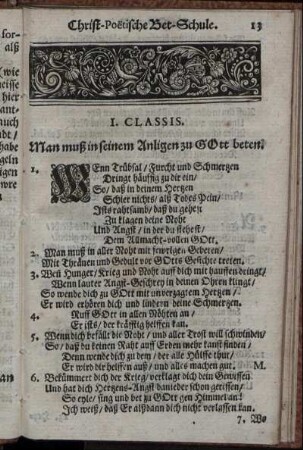 Christ-Poëtische Bet-Schule. 13
I. CLASSIS.
Man muß in seinem Anligen zu GOtt beten.
1. WEnn Trübsal / Furcht und Schmertzen
Dringt häuffig zu dir ein /
So / daß in deinem Hertzen
Schier nichts / alß Todes Pein /
Ists rahtsamb / daß du gehest
Zu klagen deine Noht
Und Angst / in der du stehest /
Dem Allmacht-vollen GOtt.
2. Man muß in aller Noht mit feurigen Geberen /
Mit Thränen und Gedult vor GOttes Gesichte treten.
3. Weñ Hunger / Krieg und Noht auff dich mit hauffen dringt /
Wenn lauter Angst-Geschrey in deinen Ohren klingt /
So wende dich zu GOtt mit unverzagtem Hertzen /
Er wird erhören dich und lindern deine Schmertzen.
4. Ruff GOtt in allen Nöhten an /
Er ists / der kräfftig helffen kan.
5. Wenn dich befällt die Noht / und aller Trost will schwinden /
So / daß du keinen Raht auff Erden mehr kanst finden /
Denn wende dich zu dem / der alle Hülffe thut /
Er wird dir helffen auß / und alles machen gut. M.
6. Bekümmert dich der Krieg / verklagt dich dein Gewissen
Und hat dich Hertzens-Angst danieder schon gerissen /
So eyle / sing und bet zu GOtt gen Himmel an!
Ich weiß / daß Er alßdann dich nicht verlassen kan.
7. We
for-
alß
(wie
hier
auch
dt /
habe
geln
an